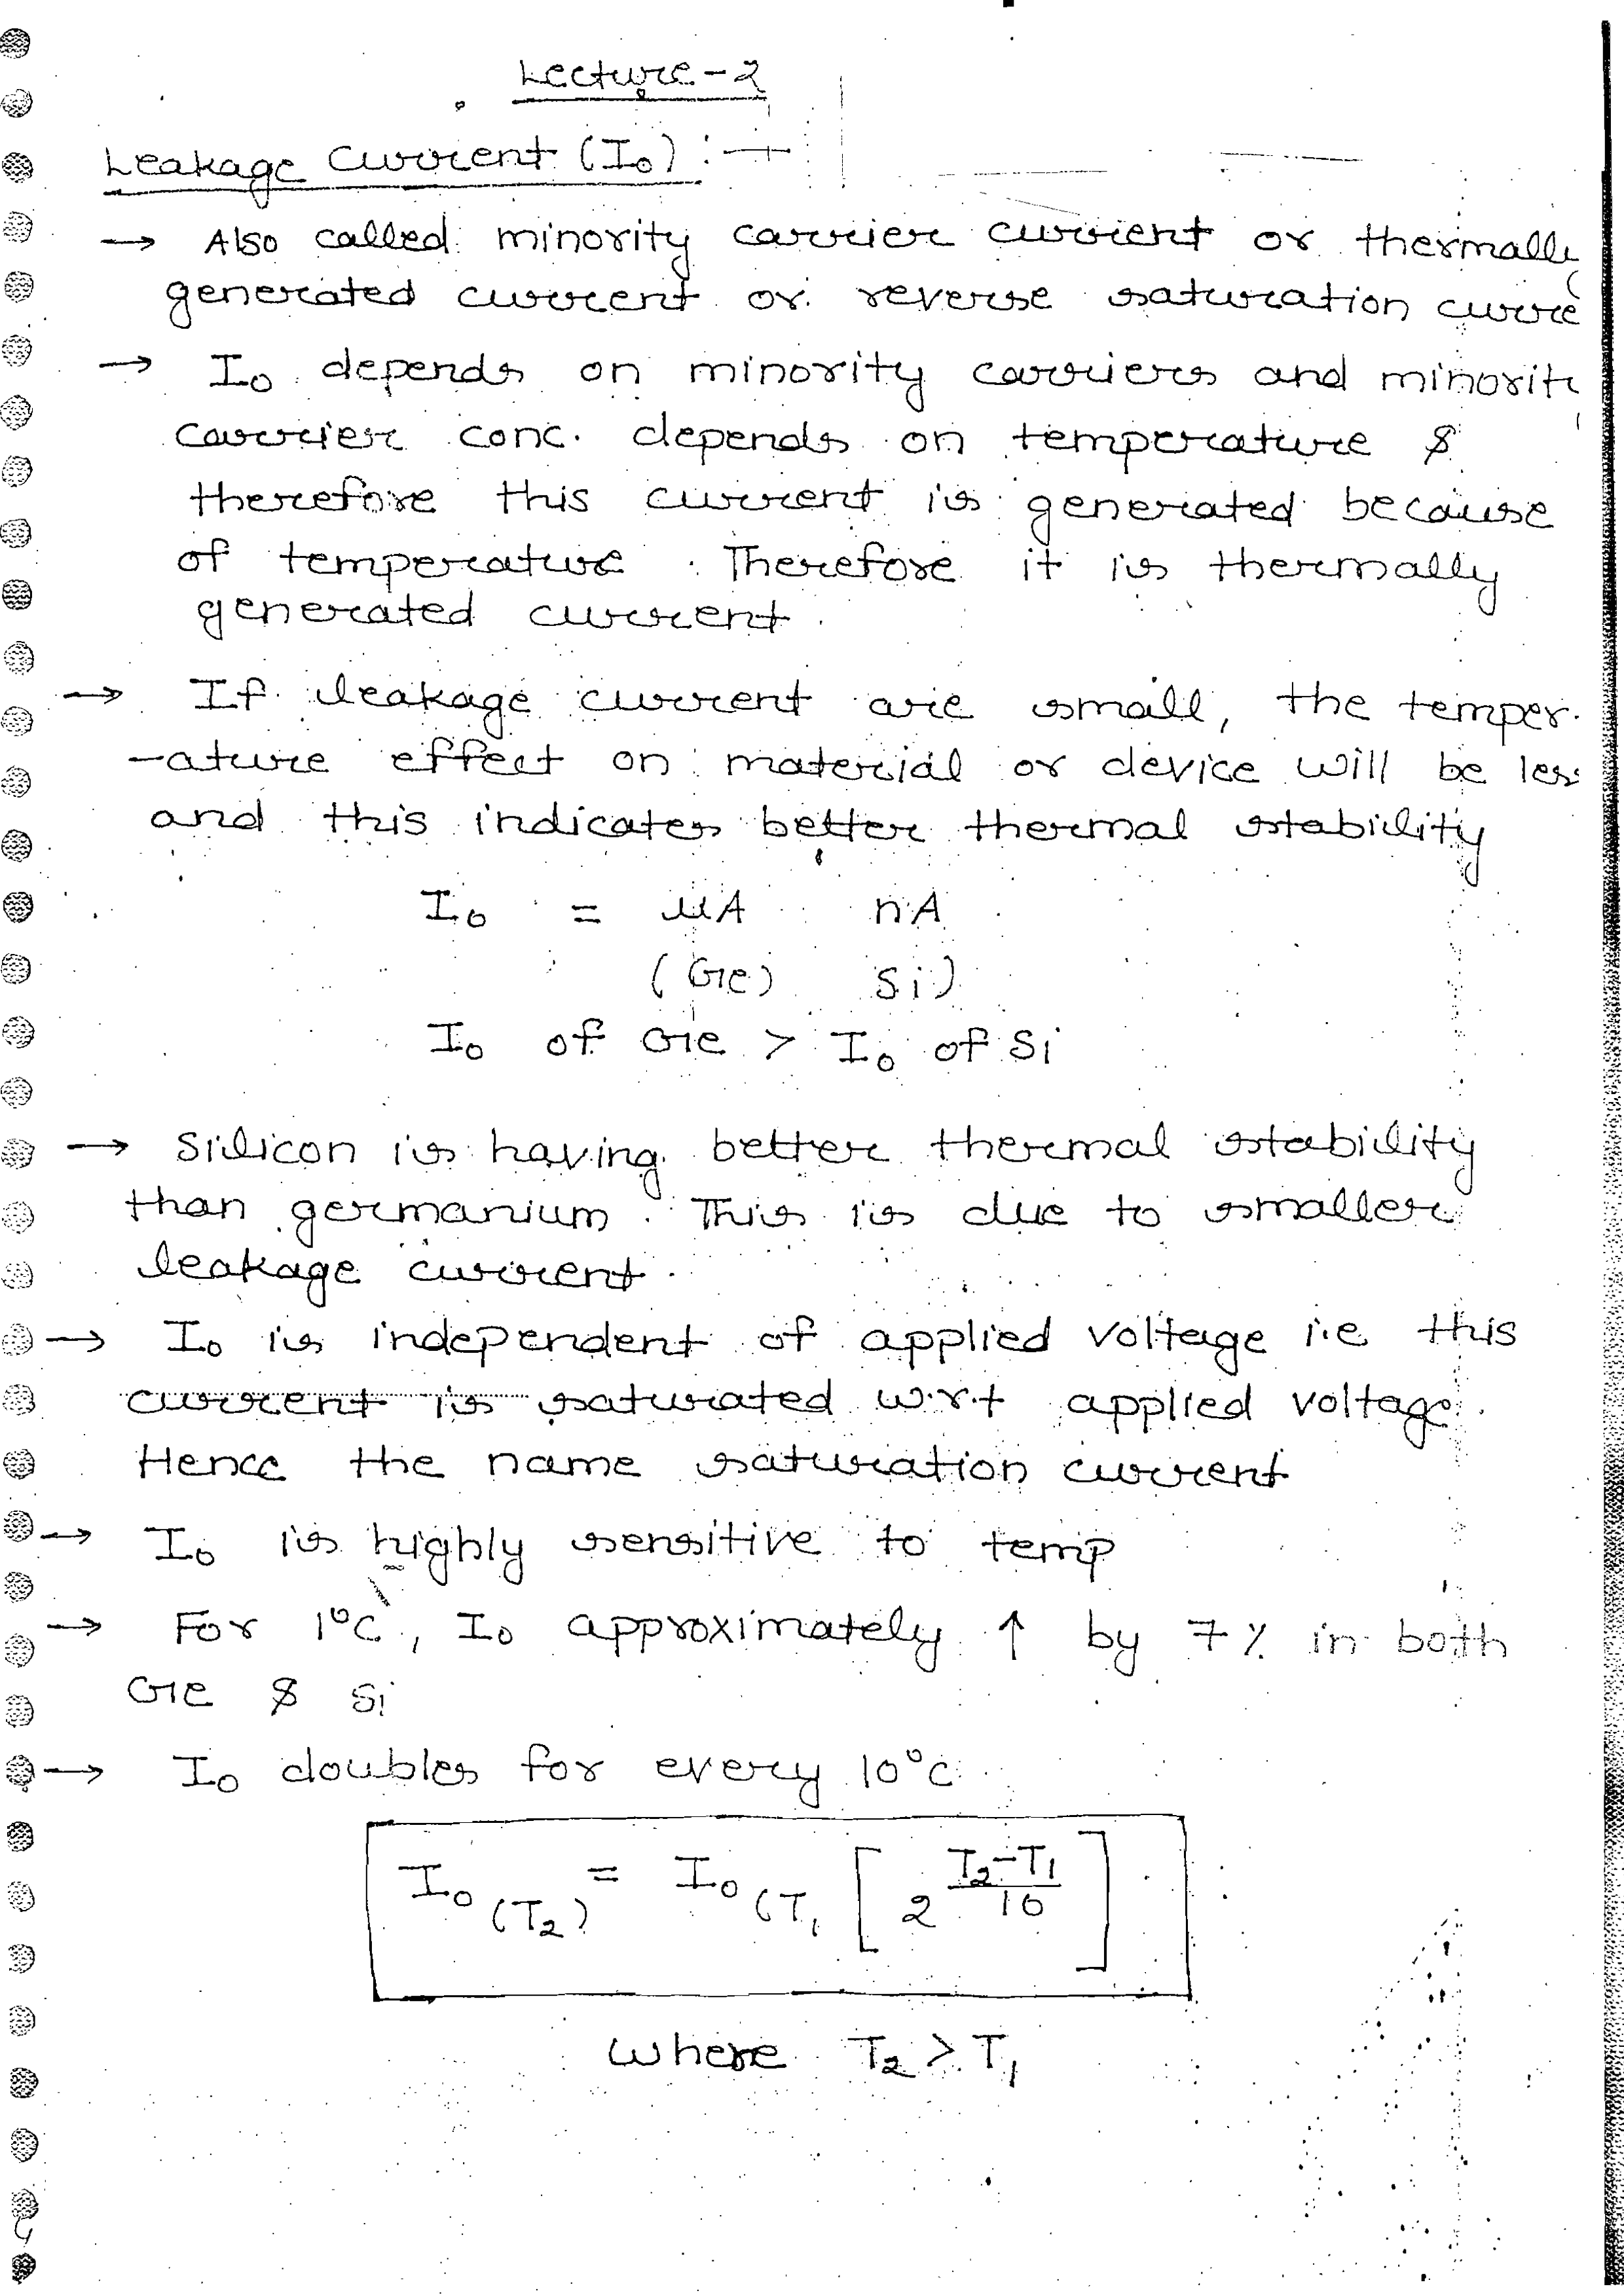 Lecture-2
Leakage Current (I₀) :-
→ Also called minority carrier current or thermally
generated current or reverse saturation curre
→ I₀ depends on minority carriers and minorit
carrier conc. depends on temperature &
therefore this current is generated because
of temperature. Therefore it is thermally
generated current.
→ If leakage current are small, the temper-
-ature effect on material or device will be les
and this indicates better thermal stability
I₀ = μA nA
(Ge) Si)
I₀ of Ge > I₀ of Si
→ Silicon is having better thermal stability
than germanium. This is due to smaller
leakage current.
→ I₀ is independent of applied voltage i.e this
current is saturated w.r.t applied voltage.
Hence the name saturation current
→ I₀ is highly sensitive to temp
→ For 1°C, I₀ approximately ↑ by 7% in both
Ge & Si
→ I₀ doubles for every 10°C
I₀(T₂) = I₀(T₁ [2^(T₂-T₁)/10]
where T₂ > T₁